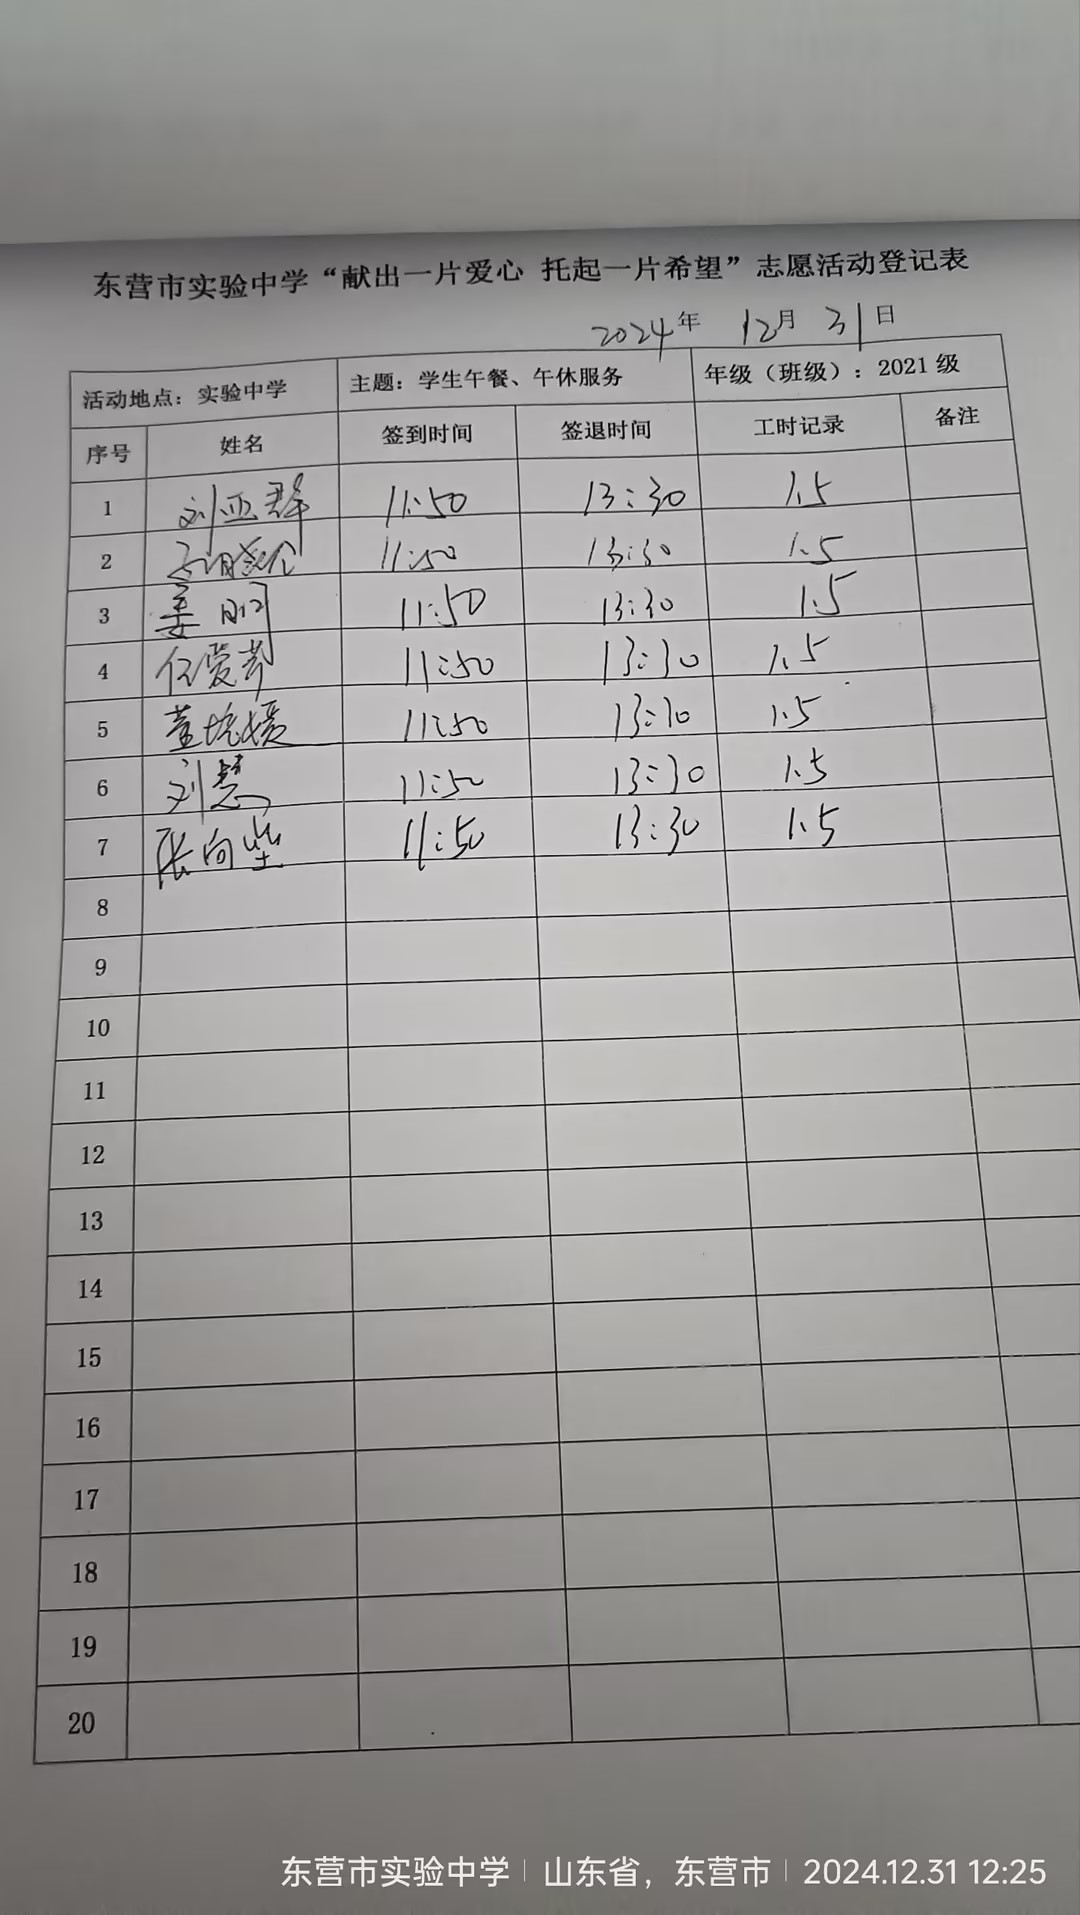 东营市实验中学“献出一片爱心 托起一片希望”志愿活动登记表
2024年 12月 31日
活动地点：实验中学 主题：学生午餐、午休服务 年级（班级）：2021级
序号 姓名 签到时间 签退时间 工时记录 备注
1 刘亚群 11:50 13:30 1.5
2 11:50 13:30 1.5
3 姜 11:50 13:30 1.5
4 任爱 11:50 13:30 1.5
5 董 11:50 13:30 1.5
6 刘慧 11:50 13:30 1.5
7 张向 11:50 13:30 1.5
8
9
10
11
12
13
14
15
16
17
18
19
20
东营市实验中学 | 山东省，东营市 | 2024.12.31 12:25